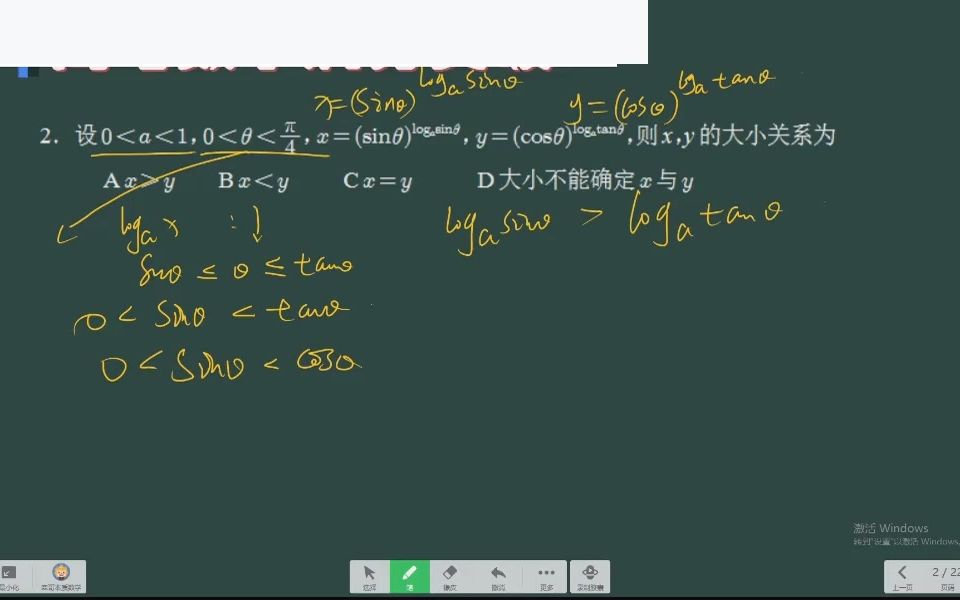 x=(sinθ)^log_a sinθ y=(cosθ)^log_a tanθ
2. 设0<a<1,0<θ<π/4,x=(sinθ)^log_a sinθ,y=(cosθ)^log_a tanθ,则x,y的大小关系为
A x>y B x<y C x=y D 大小不能确定x与y
log_a x : ↓ log_a sinθ > log_a tanθ
sinθ ≤ θ ≤ tanθ
0 < sinθ < tanθ
0 < sinθ < cosθ
激活 Windows
转到"设置"以激活 Windows。
最小化 选择 笔 橡皮 撤销 更多 上一页 2 / 22 页码